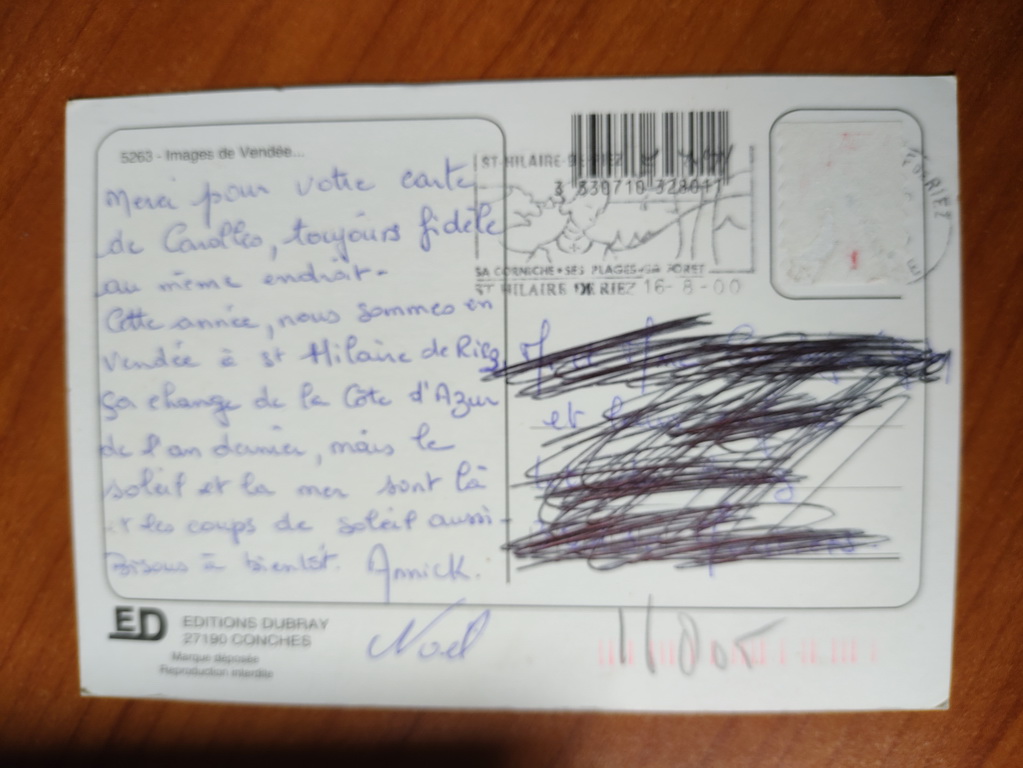 5263 - Images de Vendée...
Merci pour votre carte
de Carolles, toujours fidèle
au même endroit -
Cette année, nous sommes en
Vendée à St Hilaire de Riez
ça change de la Côte d'Azur
de l'an dernier, mais le
soleil et la mer sont là
et les coups de soleil aussi -
Bisous à bientôt. Annick.
Noël
ED
EDITIONS DUBRAY
27190 CONCHES
Marque déposée
Reproduction interdite
ST-HILAIRE-DE-RIEZ
3 330710 328011
SA CORNICHE • SES PLAGES • SA FORET
ST HILAIRE DE RIEZ 16-8-00
RIEZ
et